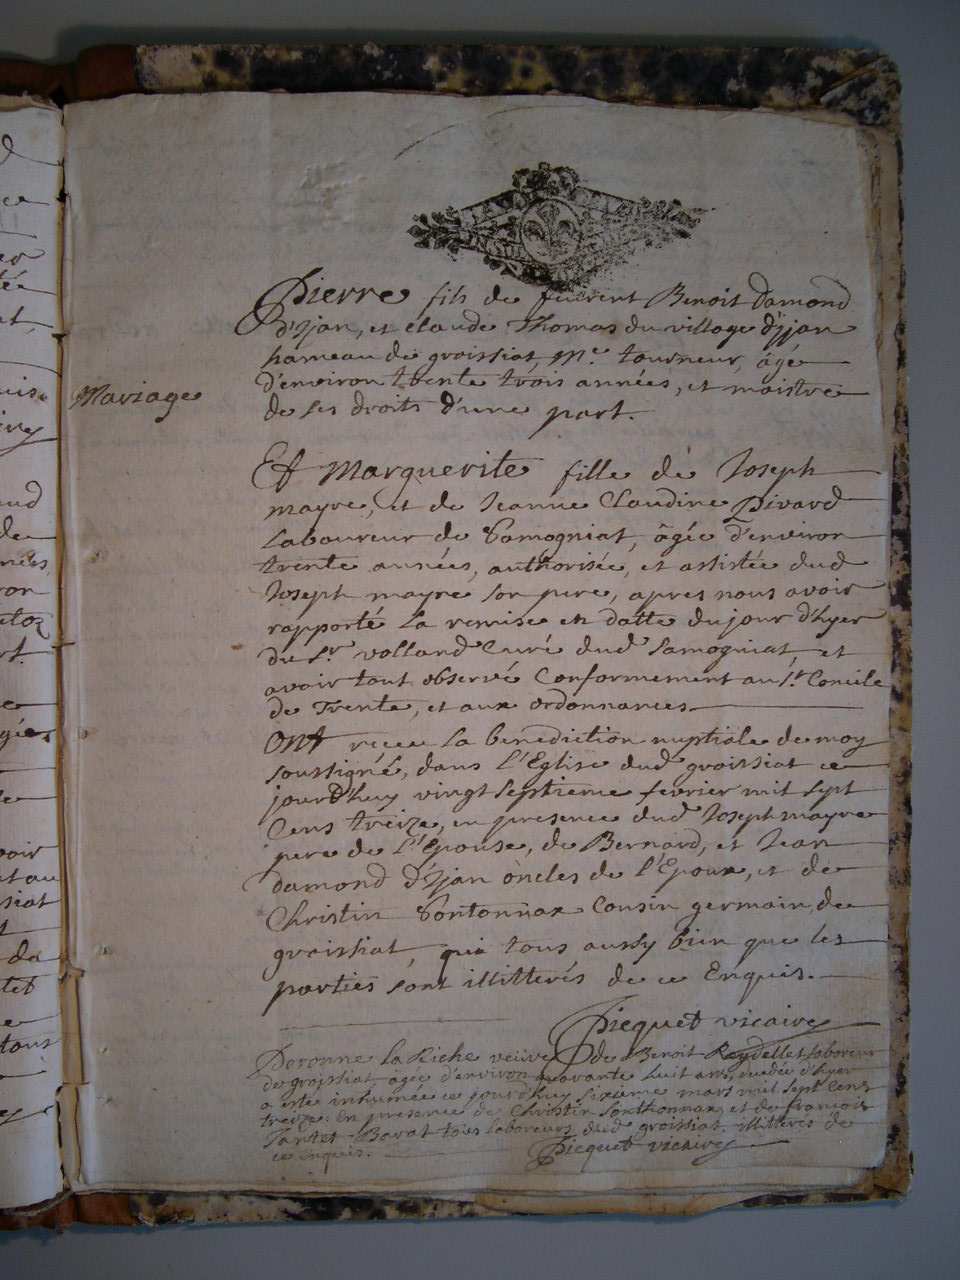 Pierre fils de feu Benoit Damond
d'Ijan, et claude Thomas du village d'Ijan
hameau de groissiat, Me. tourneur, âgé
d'environ trente trois années, et maistre
Mariage
de ses droits d'une part.
Et Marguerite fille de Joseph
mayre, et de Jeanne Claudine Pivard
Laboureur de Samogniat, âgée d'environ
trente années, authorisée, et assistée dud
Joseph mayre son pere, apres nous avoir
rapporté la remise en datte du jour d'hyer
du sr. volland Curé dud Samogniat, et
avoir tout observé Conformement au St. Concile
de Trente, et aux ordonnances
Ont receu la benediction nuptiale de moy
soussigné, dans l'Eglise dud groissiat ce
jourd'huy vingt septieme fevrier mil sept
Cens treize, en presence dud Joseph mayre
pere de l'Epouse, de Bernard, et Jean
damond d'Ijan oncles de l'Epoux, et de
Christin Sontonnax Cousin germain, de
groissiat, qui tous aussy bien que les
parties sont illitterés de ce Enquis.
Picquet vicaire
Peronne la Riche veuve de Benoit Reydellet laboureur
de groissiat, âgée d'environ quarante huit ans, decedée d'hyer
a esté inhumée ce jourd'huy sixieme mars mil sept Cens
treize: En presence de Christin Sonthonnax, et de françois
Tantet-Barat tous laboureurs dud groissiat, illitterés de
ce enquis.
Picquet vicaire